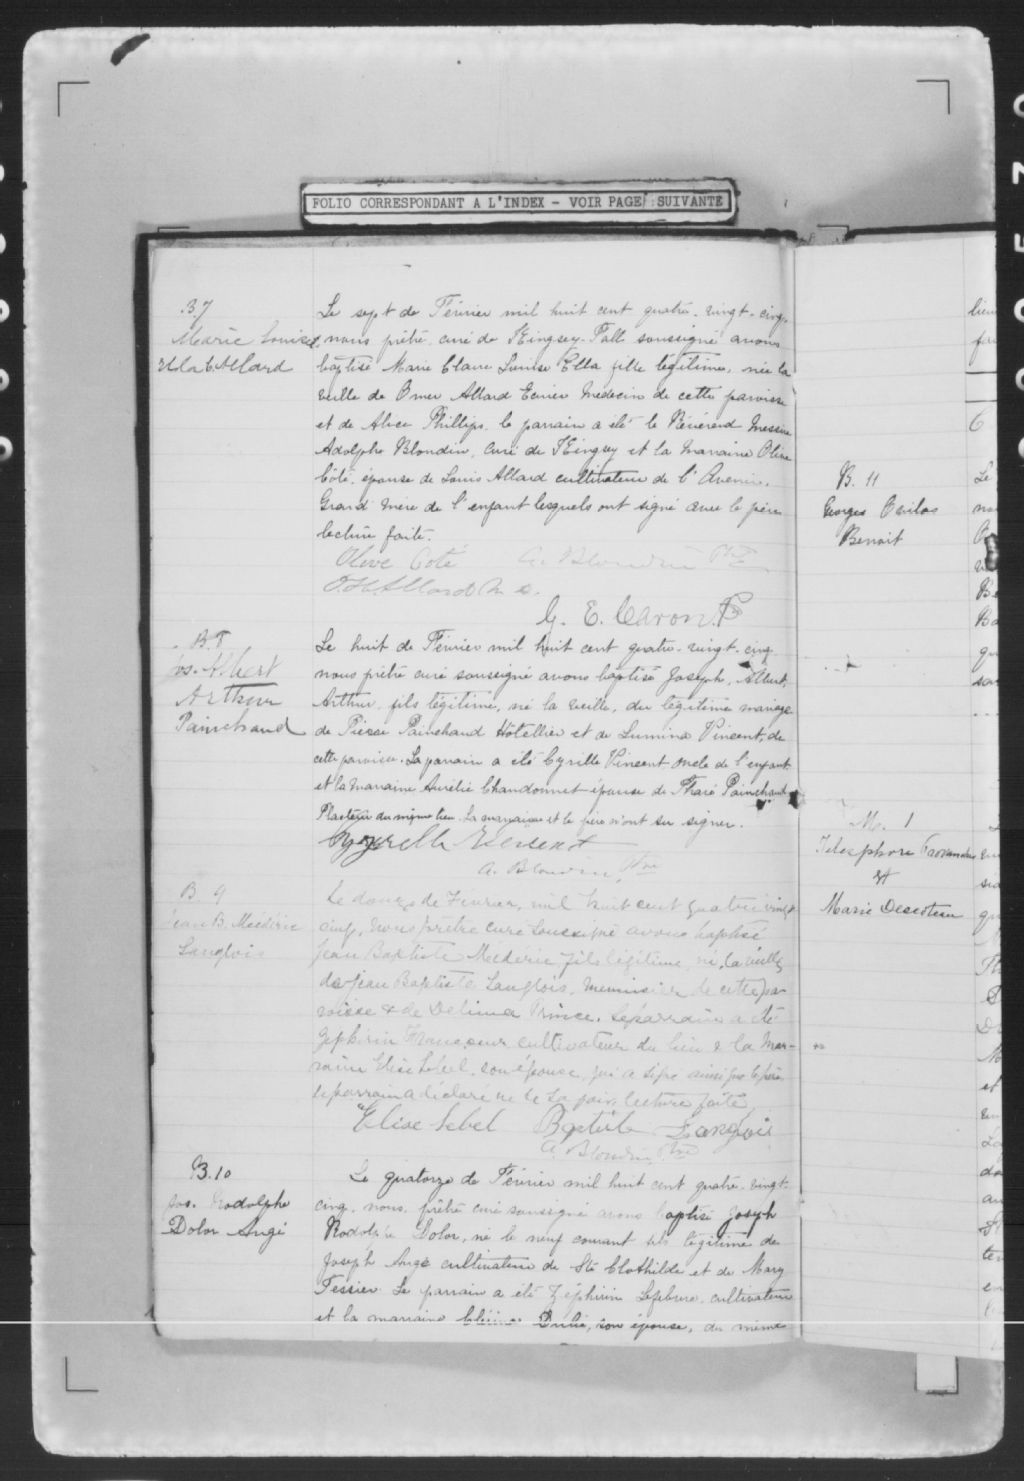 FOLIO CORRESPONDANT A L'INDEX - VOIR PAGE SUIVANTE
B.7
Marie Louise
Ella C. Allard
Le sept de Février mil huit cent quatre-vingt-cinq,
nous prêtre curé de Kingsey-Fall soussigné avons
baptisé Marie Claire Louise Ella fille légitime, née la
veille de Omer Allard Ecuier Medecin de cette paroisse
et de Alice Phillips. le parrain a été le Révérend Messire
Adolphe Blondin, Curé de Kingsey et la Marraine Olive
Côté, épouse de Louis Allard cultivateur de l'Avenir,
Grand'mère de l'enfant lesquels ont signé avec le père
lecture faite.
Olive Coté A. Blondin Ptre
O. H. Allard M.D.
G. E. Caron P
B.8
Jos. Albert
Arthur
Painchaud
Le huit de Février mil huit cent quatre-vingt-cinq
nous prêtre curé soussigné avons baptisé Joseph, Albert,
Arthur, fils légitime, né la veille, du légitime mariage
de Pierre Painchaud Hôtellier et de Lumina Vincent, de
cette paroisse. Le parrain a été Cyrille Vincent oncle de l'enfant
et la marraine Aurélie Chandonnet épouse de Tharé Painchaud
du même lieu. La marraine et le père n'ont su signer.
A. Blondin, Ptre
B 9
Jean B. Médéric
Langlois
Le douze de Février, mil huit cent quatre vingt
cinq, nous prêtre curé soussigné avons baptisé
Jean Baptiste Médéric fils légitime, né, la veille,
de Jean Baptiste Langlois, menuisier de cette pa-
roisse & de Delima Prince. Le parrain a été
Zephirin cultivateur du lieu & la Mar-
raine Elise Lebel, son épouse, qui a signé ainsi que le père
le parrain a déclaré ne le savoir, lecture faite
Elise Lebel Baptiste Langlois
A. Blondin, Ptre
B.10
Jos. Rodolphe
Dolor Augé
Le quatorze de Février mil huit cent quatre-vingt-
cinq, nous, prêtre curé soussigné avons baptisé Joseph
Rodolphe Dolor, né le neuf courant fils légitime de
Joseph Augé cultivateur de Ste Clothilde et de Mary
Tessier. Le parrain a été Zéphirin Lefebvre, cultivateur
et la marraine Dubé, son épouse, du même
B. 11
Georges
Benoit
M. 1
Telesphore
et
Marie Descoteau